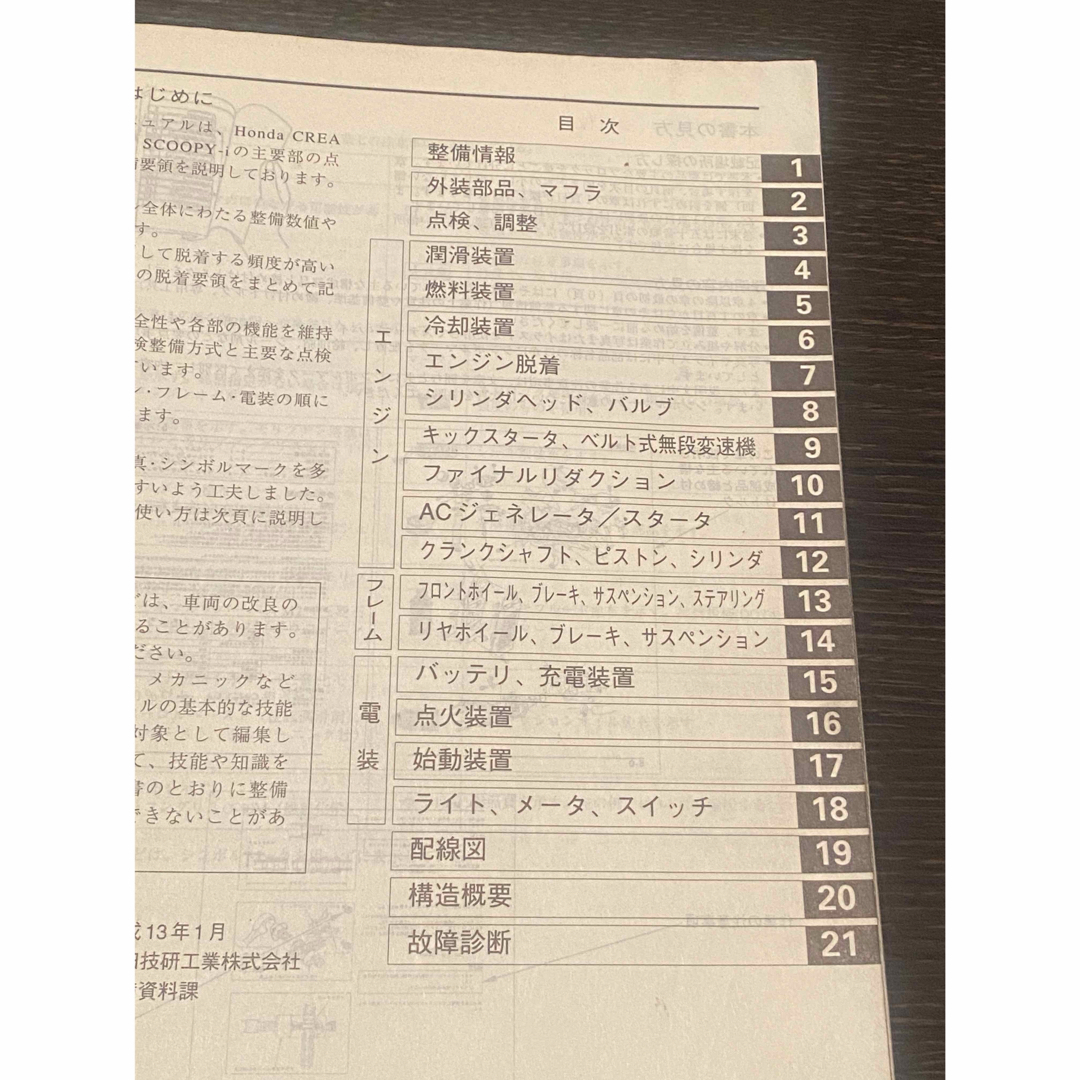 はじめに
ュアルは、Honda CREA
SCOOPY-iの主要部の点
要領を説明しております。
全体にわたる整備数値や
す。
して脱着する頻度が高い
の脱着要領をまとめて記
全性や各部の機能を維持
検整備方式と主要な点検
います。
ン・フレーム・電装の順に
ます。
真・シンボルマークを多
すいよう工夫しました。
使い方は次頁に説明し
は、車両の改良の
ることがあります。
ださい。
メカニックなど
ルの基本的な技能
対象として編集し
て、技能や知識を
書のとおりに整備
できないことがあ
13年1月
技研工業株式会社
資料課
目 次
整備情報 1
外装部品、マフラ 2
点検、調整 3
エンジン
潤滑装置 4
燃料装置 5
冷却装置 6
エンジン脱着 7
シリンダヘッド、バルブ 8
キックスタータ、ベルト式無段変速機 9
ファイナルリダクション 10
ACジェネレータ／スタータ 11
クランクシャフト、ピストン、シリンダ 12
フレーム
フロントホイール、ブレーキ、サスペンション、ステアリング 13
リヤホイール、ブレーキ、サスペンション 14
電装
バッテリ、充電装置 15
点火装置 16
始動装置 17
ライト、メータ、スイッチ 18
配線図 19
構造概要 20
故障診断 21